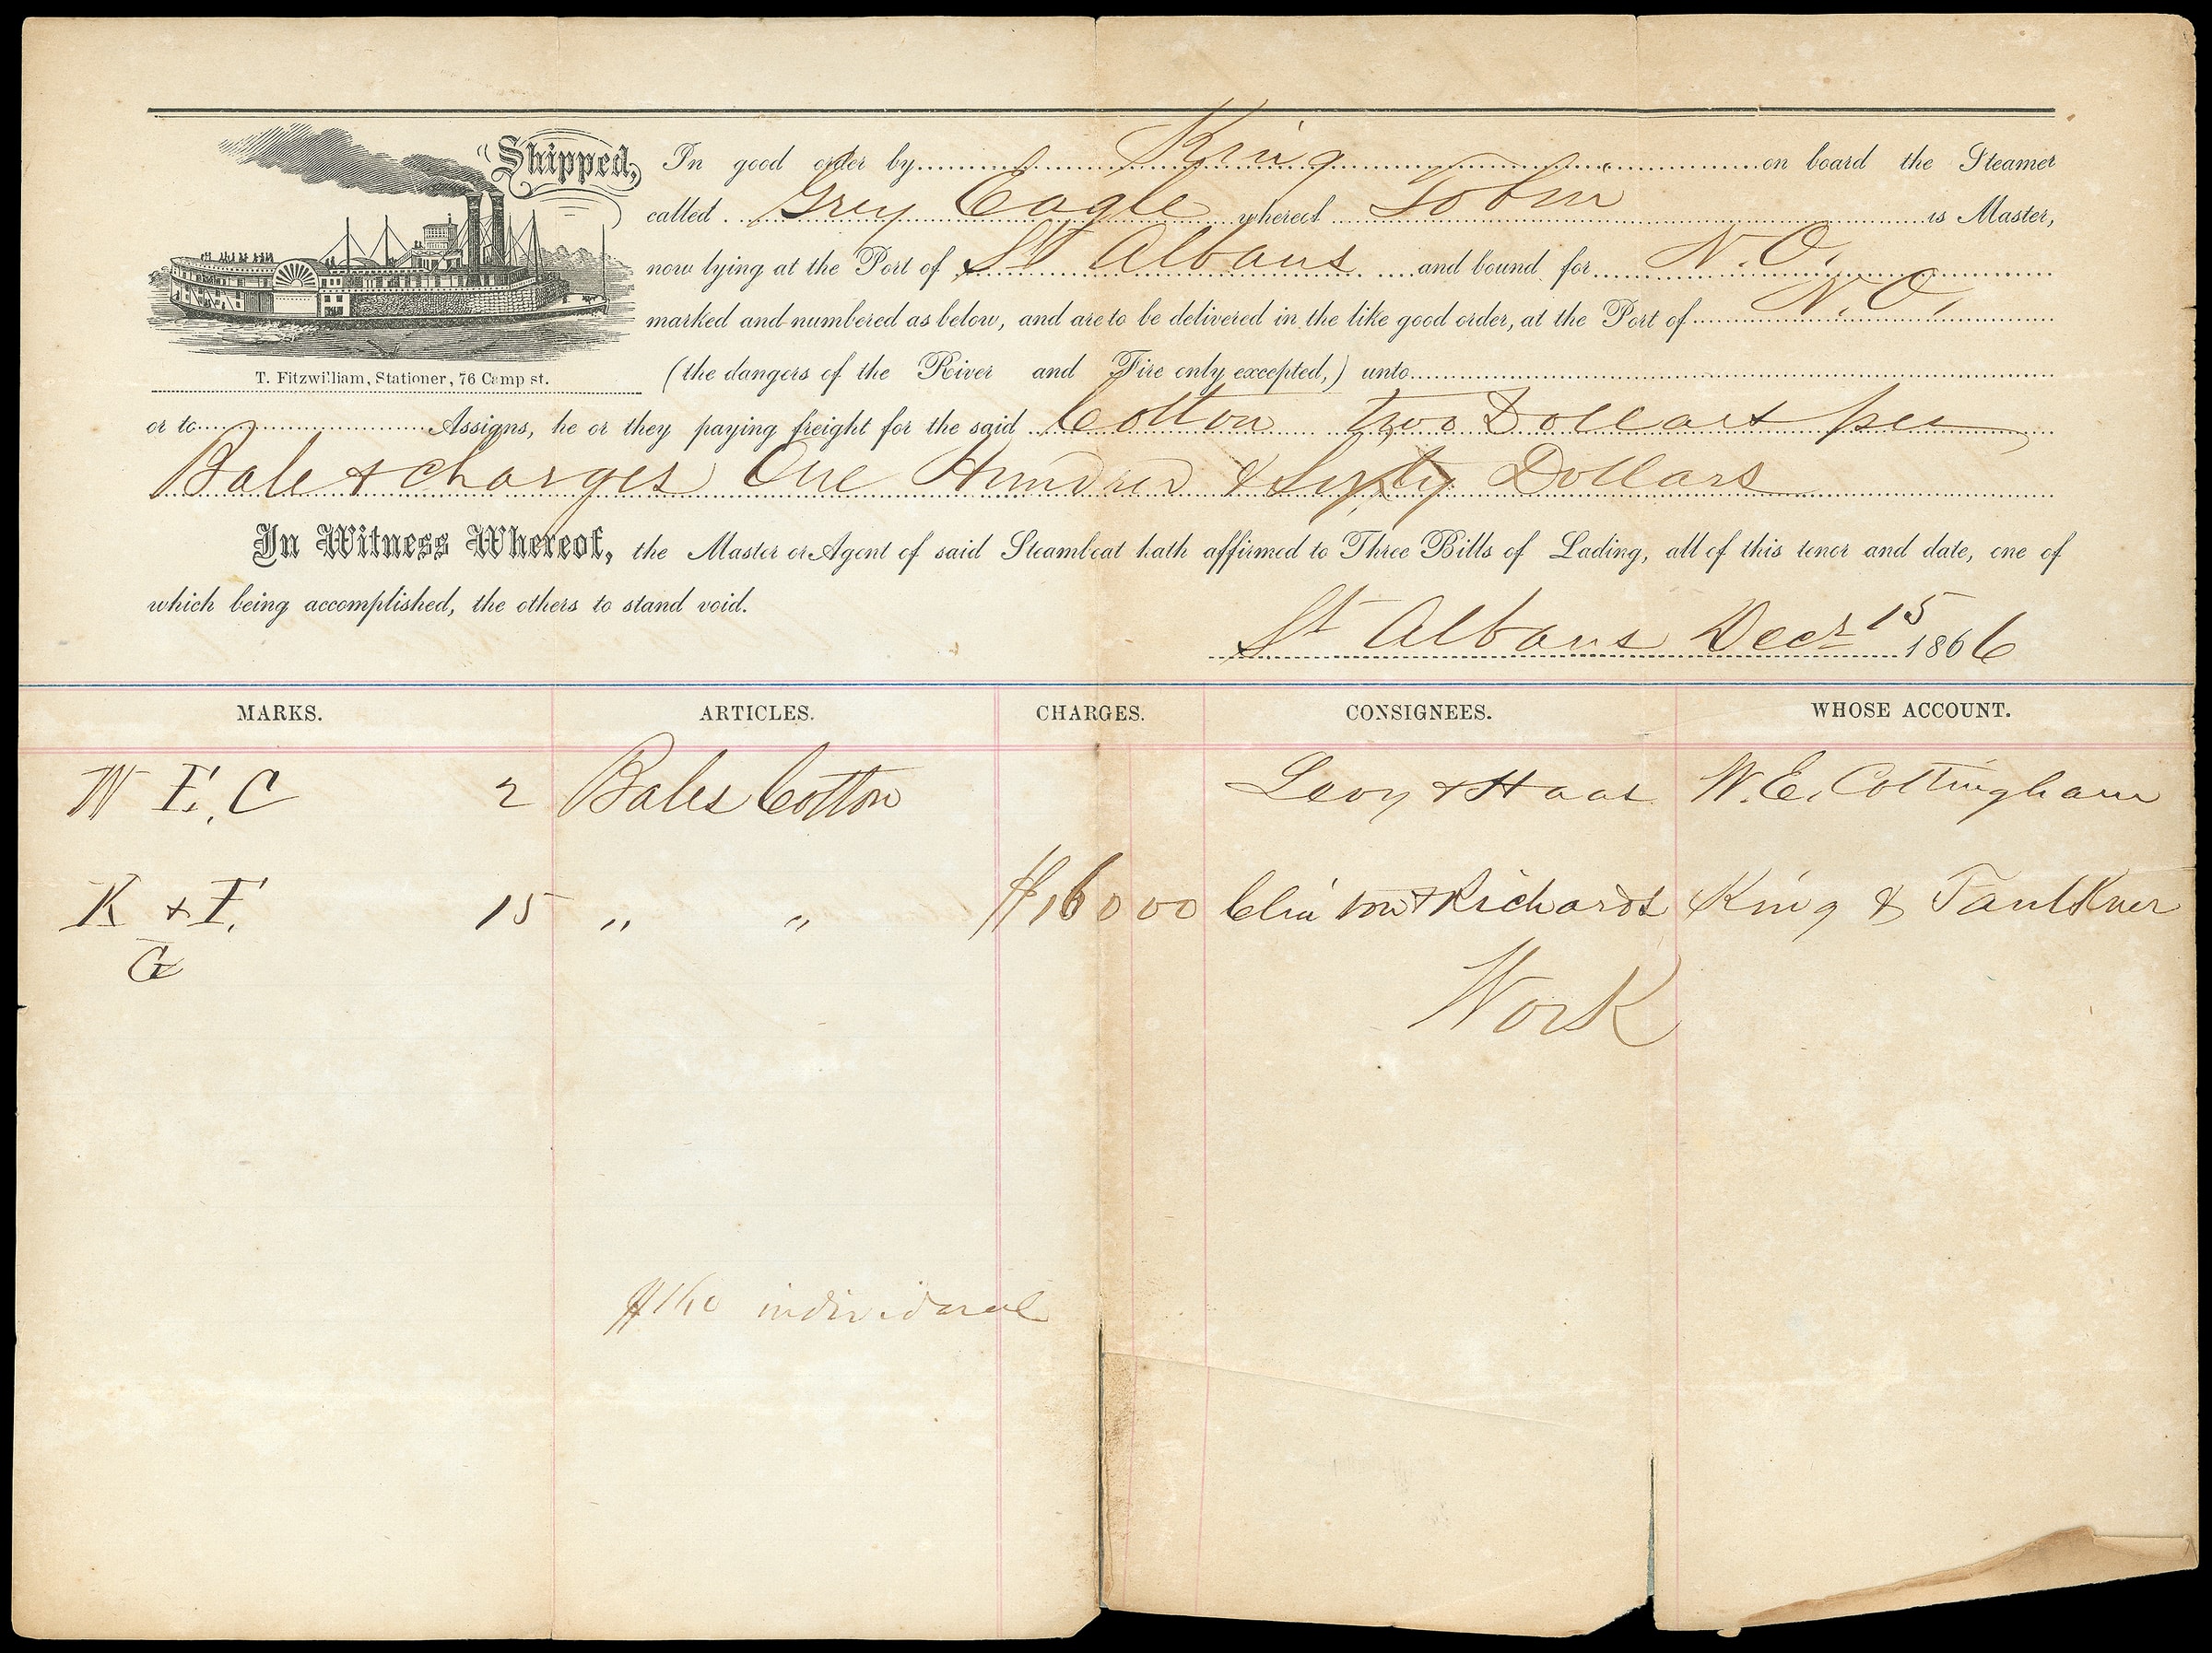 "Shipped, In good order by King on board the Steamer
called Grey Eagle whereof Tobin is Master,
now lying at the Port of St Albans and bound for N.O.
marked and numbered as below, and are to be delivered in the like good order, at the Port of N.O.
(the dangers of the River and Fire only excepted,) unto
T. Fitzwilliam, Stationer, 76 Camp st.
or to Assigns, he or they paying freight for the said Cotton two Dollars per
Bale & charges One Hundred & Sixty Dollars
In Witness Whereof, the Master or Agent of said Steamboat hath affirmed to Three Bills of Lading, all of this tenor and date, one of
which being accomplished, the others to stand void.
St Albans Decr 15 1866
MARKS. ARTICLES. CHARGES. CONSIGNEES. WHOSE ACCOUNT.
W E. C 2 Bales Cotton Levy & Haas W. E. Cottingham
K & F. 15 " " $160 00 Clinton & Richards King & Faulkner
G
Work
$160 individual